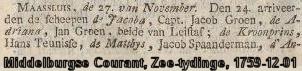 MAASSLUIS, de 27. van November. Den 24. arriveer-
den de scheepen de Jacoba, Capt. Jacob Groen, de A-
driana, Jan Groen, beide van Leistaf; de Kroonprins,
Hans Teunisse, de Matthys, Jacob Spaanderman, d'An-
Middelburgse Courant, Zee-tydinge, 1759-12-01